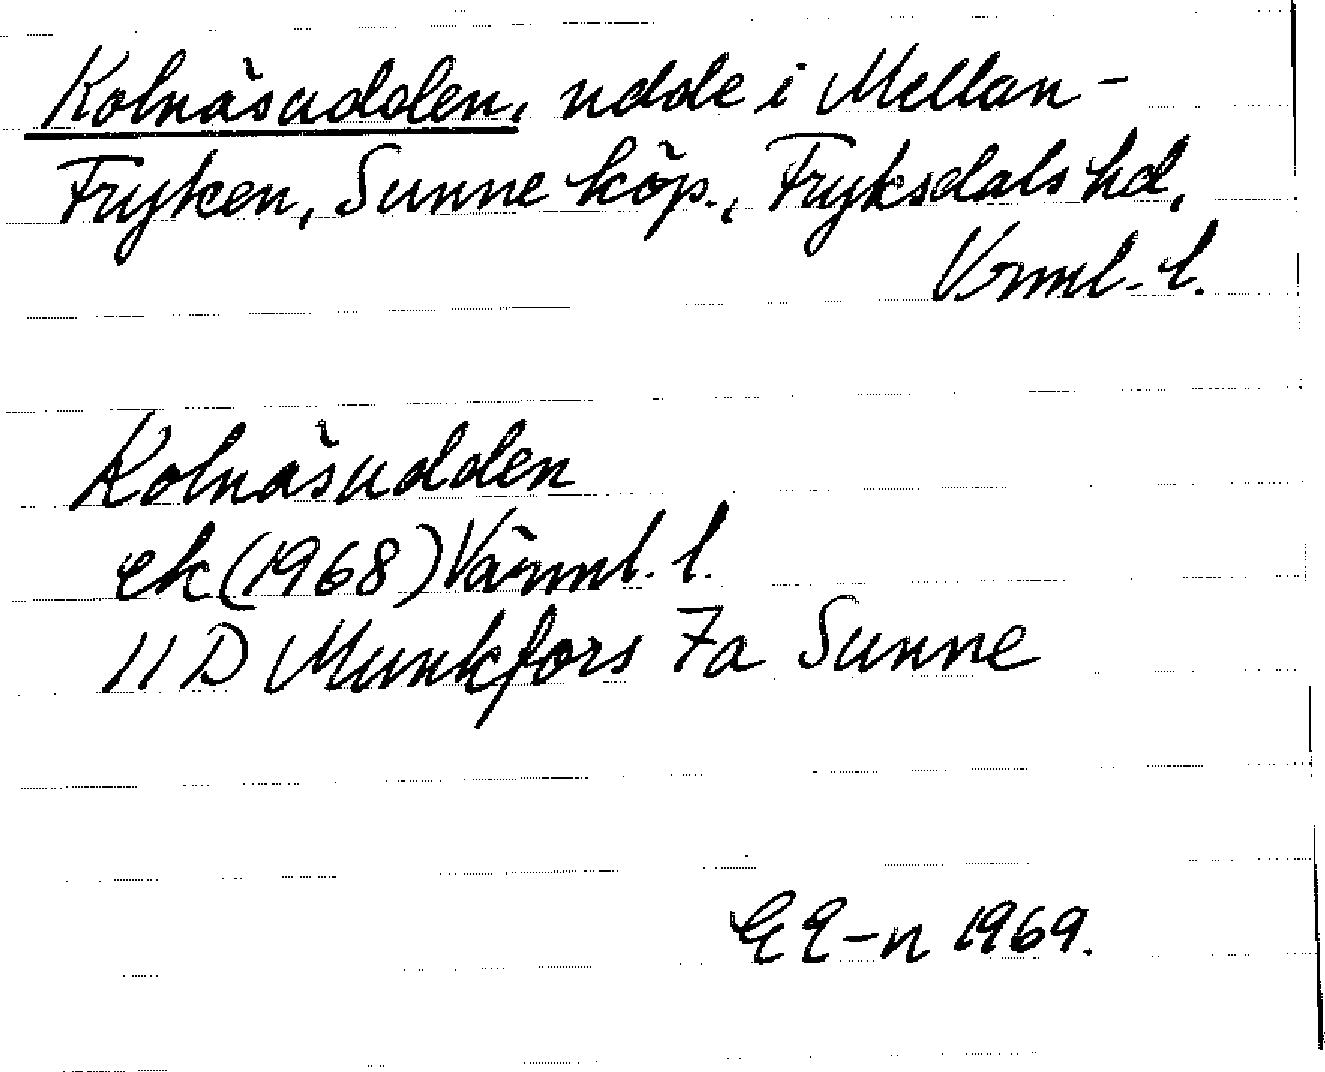 Kolnäsudden, udde i Mellan-
Fryken, Sunne köp., Fryksdals hd,
Vrml. l.
Kolnäsudden
ek (1968) Värml. l.
11 D Munkfors 7a Sunne
E E-n 1969.